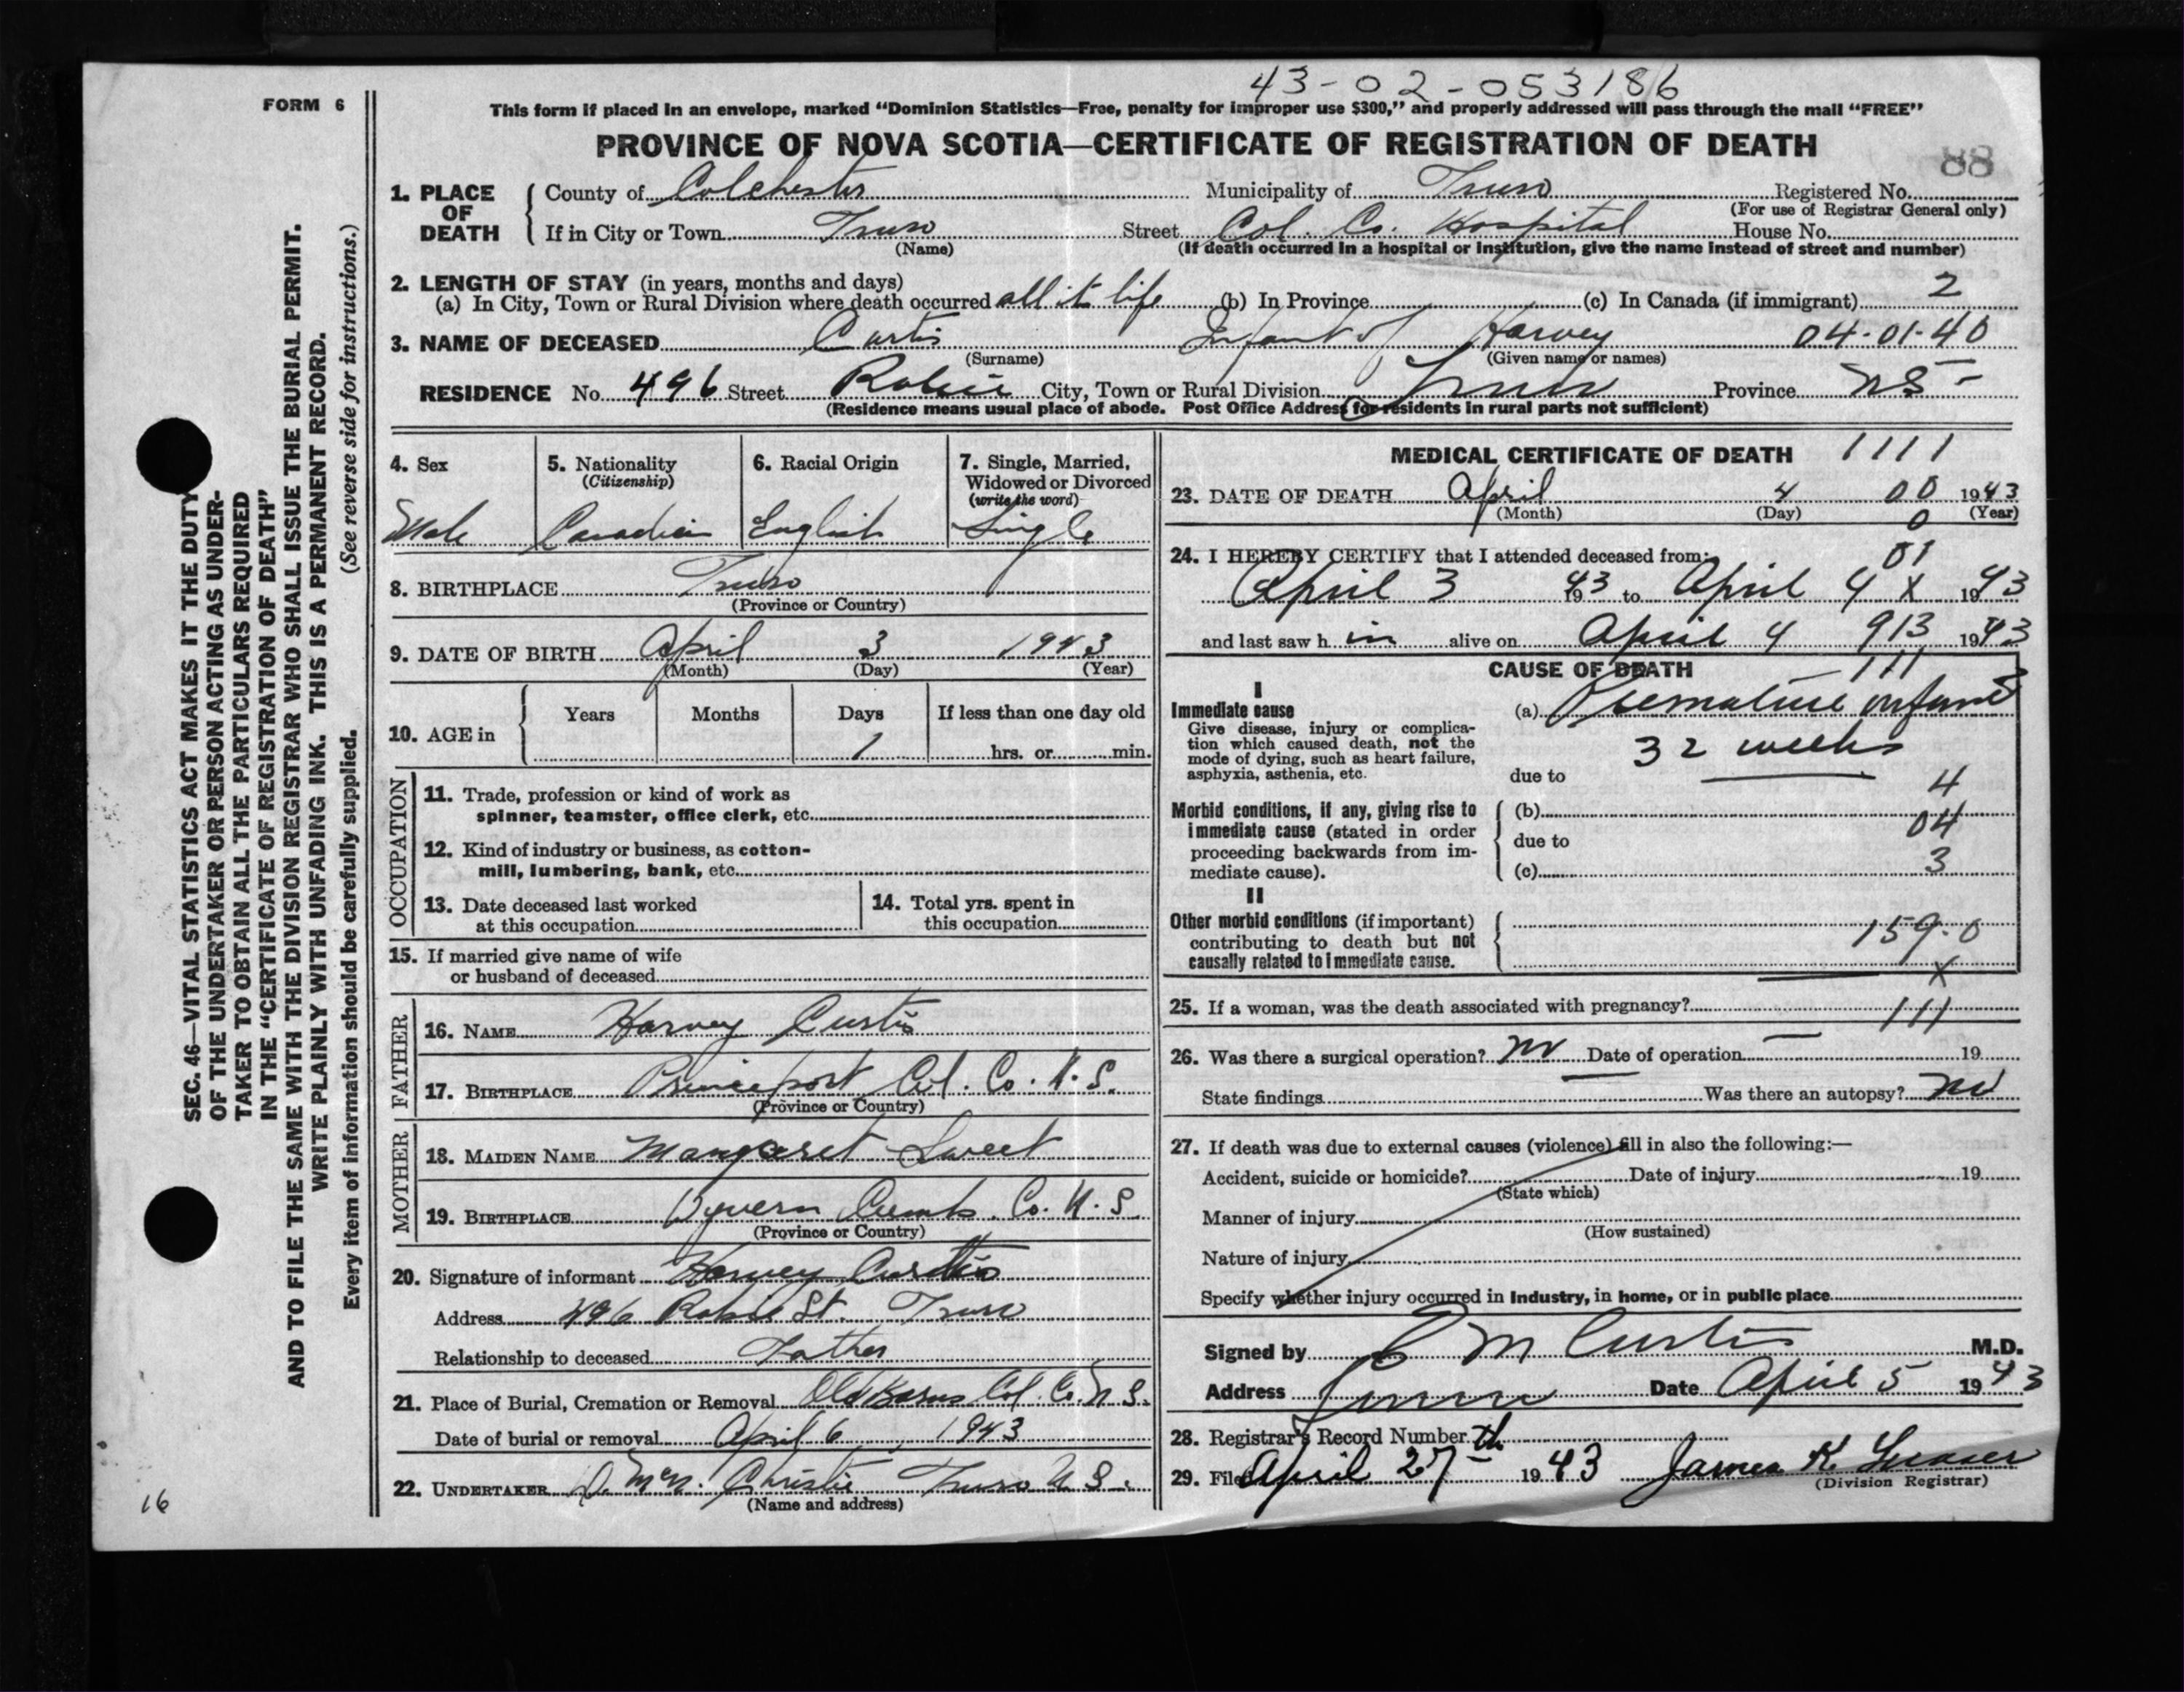 43-02-053186
FORM 6
This form if placed in an envelope, marked “Dominion Statistics—Free, penalty for improper use $300,” and properly addressed will pass through the mail “FREE”
PROVINCE OF NOVA SCOTIA—CERTIFICATE OF REGISTRATION OF DEATH
88
1. PLACE OF DEATH { County of Colchester Municipality of Truro Registered No.
(For use of Registrar General only)
If in City or Town Truro Street Col. Co. Hospital House No.
(Name) (If death occurred in a hospital or institution, give the name instead of street and number)
2. LENGTH OF STAY (in years, months and days)
(a) In City, Town or Rural Division where death occurred all it life (b) In Province (c) In Canada (if immigrant) 2
3. NAME OF DECEASED Curtis Infant of Harvey 04-01-40
(Surname) (Given name or names)
RESIDENCE No. 496 Street Robie City, Town or Rural Division Truro Province NS-
(Residence means usual place of abode. Post Office Address for residents in rural parts not sufficient)
4. Sex
Male
5. Nationality
(Citizenship)
Canadian
6. Racial Origin
English
7. Single, Married,
Widowed or Divorced
(write the word)
Single
8. BIRTHPLACE Truro
(Province or Country)
9. DATE OF BIRTH April 3 1943
(Month) (Day) (Year)
10. AGE in { Years Months Days If less than one day old
1 hrs. or min.
OCCUPATION
11. Trade, profession or kind of work as
spinner, teamster, office clerk, etc.
12. Kind of industry or business, as cotton-
mill, lumbering, bank, etc.
13. Date deceased last worked
at this occupation
14. Total yrs. spent in
this occupation
15. If married give name of wife
or husband of deceased
FATHER
16. NAME Harvey Curtis
17. BIRTHPLACE Princeport Col. Co. N. S.
(Province or Country)
MOTHER
18. MAIDEN NAME Margaret Sweet
19. BIRTHPLACE Cumb. Co. N. S
(Province or Country)
20. Signature of informant Harvey Curtis
Address 496 Robie St. Truro
Relationship to deceased Father
21. Place of Burial, Cremation or Removal Old Barns Col. Co. N. S.
Date of burial or removal April 6, 1943
22. UNDERTAKER D. McN. Christie Truro N. S.
(Name and address)
MEDICAL CERTIFICATE OF DEATH 1111
23. DATE OF DEATH April 4 00 1943
(Month) (Day) 0 (Year)
24. I HEREBY CERTIFY that I attended deceased from: 01
April 3 1943 to April 4 X 1943
and last saw h im alive on April 4 913 1943
CAUSE OF DEATH 111
I
Immediate cause
Give disease, injury or complica-
tion which caused death, not the
mode of dying, such as heart failure,
asphyxia, asthenia, etc.
(a) Premature infant 3
32 weeks
due to 4
Morbid conditions, if any, giving rise to
immediate cause (stated in order
proceeding backwards from im-
mediate cause).
(b)
due to 04
(c) 3
II
Other morbid conditions (if important)
contributing to death but not
causally related to immediate cause.
159-0
X
25. If a woman, was the death associated with pregnancy? 111
26. Was there a surgical operation? no Date of operation — 19
State findings Was there an autopsy? no
27. If death was due to external causes (violence) fill in also the following:—
Accident, suicide or homicide? Date of injury 19
(State which)
Manner of injury
(How sustained)
Nature of injury
Specify whether injury occurred in industry, in home, or in public place
Signed by E M Curtis M.D.
Address Truro Date April 5 1943
28. Registrar's Record Number
29. Filed April 27th 1943 James K.
(Division Registrar)
SEC. 46—VITAL STATISTICS ACT MAKES IT THE DUTY
OF THE UNDERTAKER OR PERSON ACTING AS UNDER-
TAKER TO OBTAIN ALL THE PARTICULARS REQUIRED
IN THE “CERTIFICATE OF REGISTRATION OF DEATH”
AND TO FILE THE SAME WITH THE DIVISION REGISTRAR WHO SHALL ISSUE THE BURIAL PERMIT.
WRITE PLAINLY WITH UNFADING INK. THIS IS A PERMANENT RECORD.
Every item of information should be carefully supplied. (See reverse side for instructions.)
16